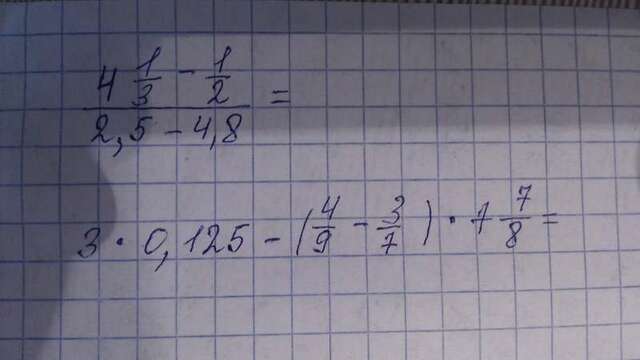 4 1/3 - 1/2
2,5 - 4,8 =
3 · 0,125 - (4/9 - 3/7) · 1 7/8 =